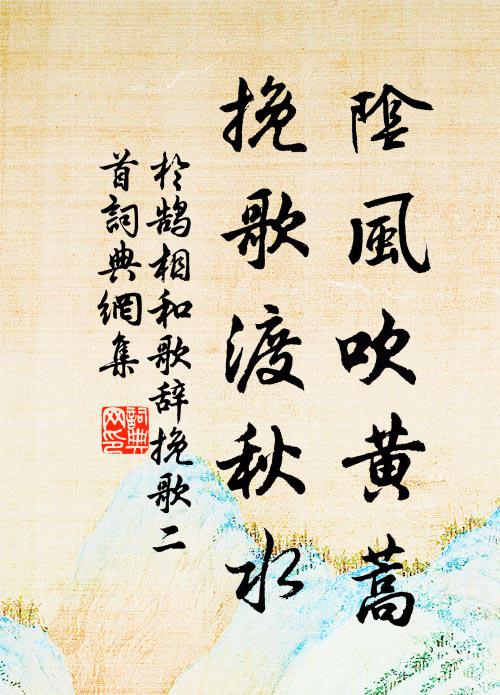 陰風吹黃蒿
挽歌渡秋水
於鵠相和歌辞挽歌二
首詞典網集
詞典
网印